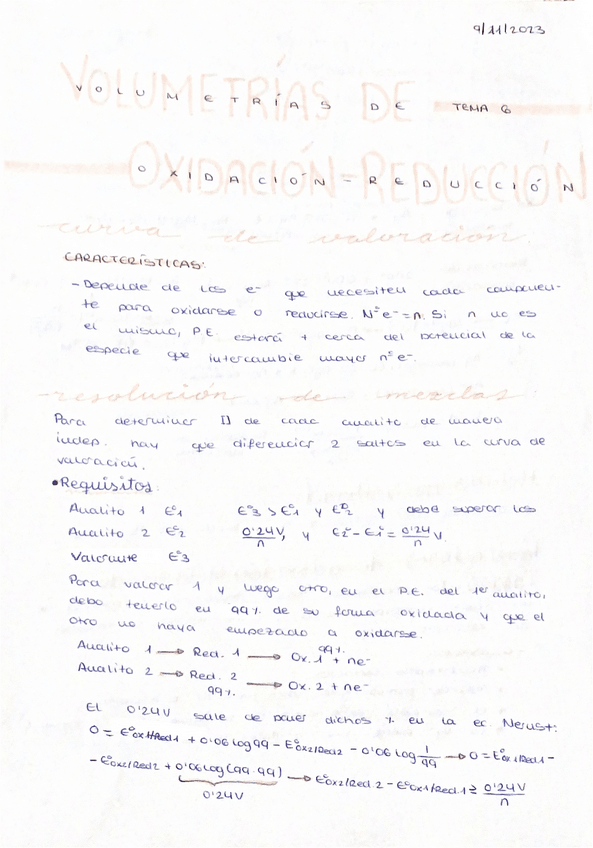 9/11/2023
VOLUMETRÍAS DE TEMA 6
OXIDACIÓN-REDUCCIÓN
curva de valoración.
CARACTERÍSTICAS:
- Depende de los e⁻ que necesiten cada componen-
te para oxidarse o reducirse. Nº e⁻ = n. Si n no es
el mismo, P.E. estará + cerca del potencial de la
especie que intercambie mayor nº e⁻.
-resolución de mezclas.
Para determinar [] de cada analito de manera
indep. hay que diferenciar 2 saltos en la curva de
valoración.
• Requisitos:
Analito 1 E°1 E°3 > E°1 y E°2 y debe superar los
Analito 2 E°2 0'24V/n, y E°2 - E°1 = 0'24/n V.
Valorante E°3
Para valorar 1 y luego otro, en el P.E. del 1er analito,
debo tenerlo en 99% de su forma oxidada y que el
otro no haya empezado a oxidarse.
Analito 1 → Red. 1 → Ox. 1 + ne⁻ 99%
Analito 2 → Red. 2 → Ox. 2 + ne⁻
99%
El 0'24V sale de poner dichos % en la ec. Nernst:
0 = E°ox1/Red1 + 0'06 log 99 - E°ox2/Red2 - 0'06 log 1/99 → 0 = E°ox1/Red1 -
- E°ox2/Red2 + 0'06 log (99·99) → E°ox2/Red.2 - E°ox1/Red.1 ≥ 0'24V/n
0'24V